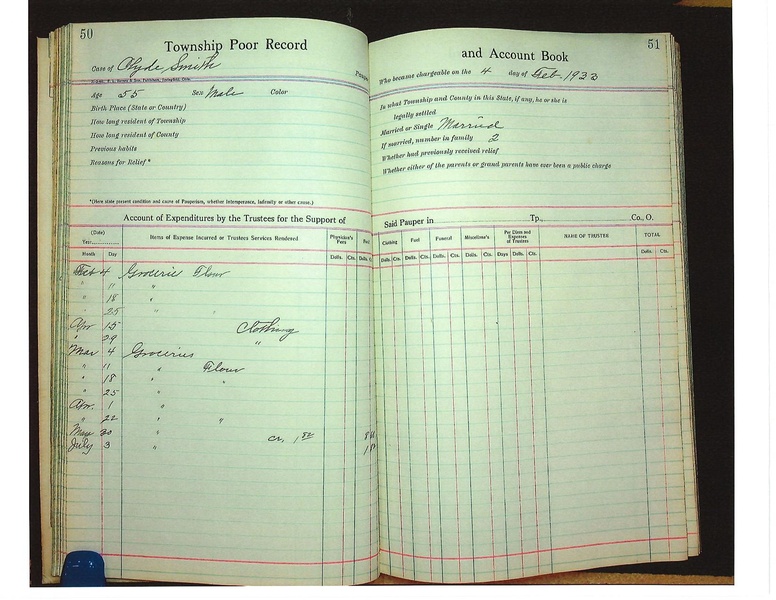 50
Township Poor Record
Case of Clyde Smith
Age 55 Sex Male Color
Birth Place (State or Country)
How long resident of Township
How long resident of County
Previous habits
Reasons for Relief*
*(Here state present condition and cause of Pauperism, whether Intemperance, Infirmity or other cause.)
Account of Expenditures by the Trustees for the Support of
(Date)
Year
Items of Expense Incurred or Trustees Services Rendered
Physician's Fees
Month Day Dolls. Cts. Dolls.
Feb 4 Groceries Flour
" 11 "
" 18 "
" 25 " "
Apr 15 Clothing
" 29 "
Mar 4 Groceries
" 11 " Flour
" 18 " "
" 25 "
Apr. 1 "
" 22 " "
May 20 "
July 3 "
51
and Account Book
Who became chargeable on the 4 day of Feb. 1933
In what Township and County in this State, if any, he or she is
legally settled
Married or Single Married
If married, number in family 2
Whether had previously received relief
Whether either of the parents or grand parents have ever been a public charge
Said Pauper in Tp., Co., O.
Clothing Fuel Funeral Miscellane's Per Diem and Expenses of Trustees NAME OF TRUSTEE TOTAL
Dolls. Cts. Dolls. Cts. Dolls. Cts. Dolls. Cts. Days Dolls. Cts. Dolls. Cts.